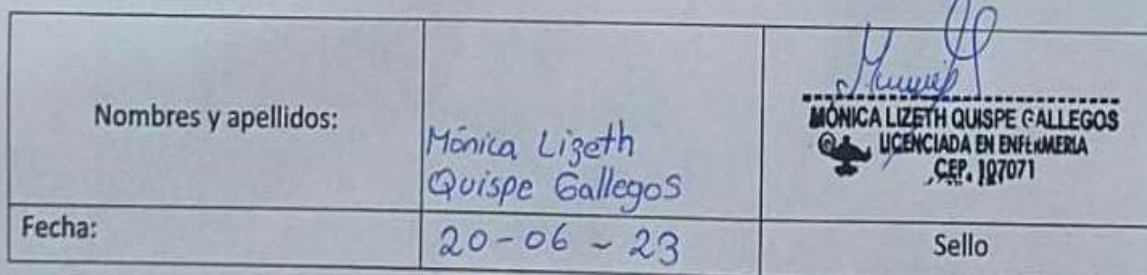 Nombres y apellidos:
Mónica Lizeth
Quispe Gallegos
MÓNICA LIZETH QUISPE GALLEGOS
LICENCIADA EN ENFERMERIA
CEP. 107071
Fecha:
20-06-23
Sello